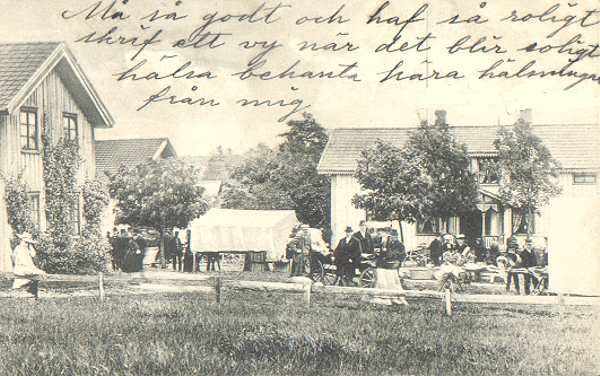 Må så godt och haf så roligt
skrif ett vy när det blir soligt
hälsa behanta kära hälsningar
från mig